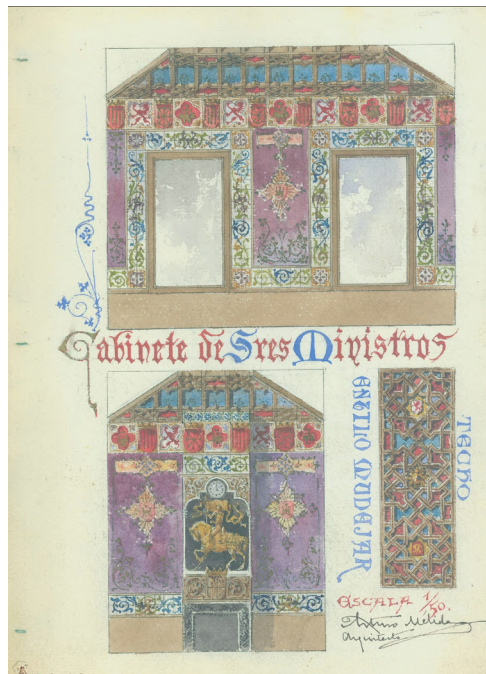 Gabinete de Sres Ministros
ESTILO MUDEJAR
TECHO
ESCALA 1/50.
Arturo Mélida
Arquitecto